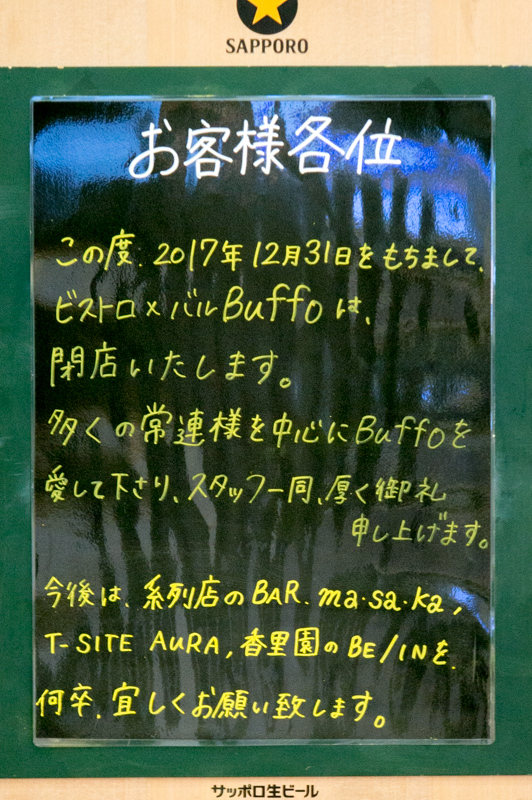 SAPPORO
お客様各位
この度、2017年12月31日をもちまして、
ビストロ×バルBuffoは、
閉店いたします。
多くの常連様を中心にBuffoを
愛して下さり、スタッフ一同、厚く御礼
申し上げます。
今後は、系列店のBAR.ma・sa・ka,
T-SITE AURA,香里園のBE/INを、
何卒、宜しくお願い致します。
サッポロ生ビール